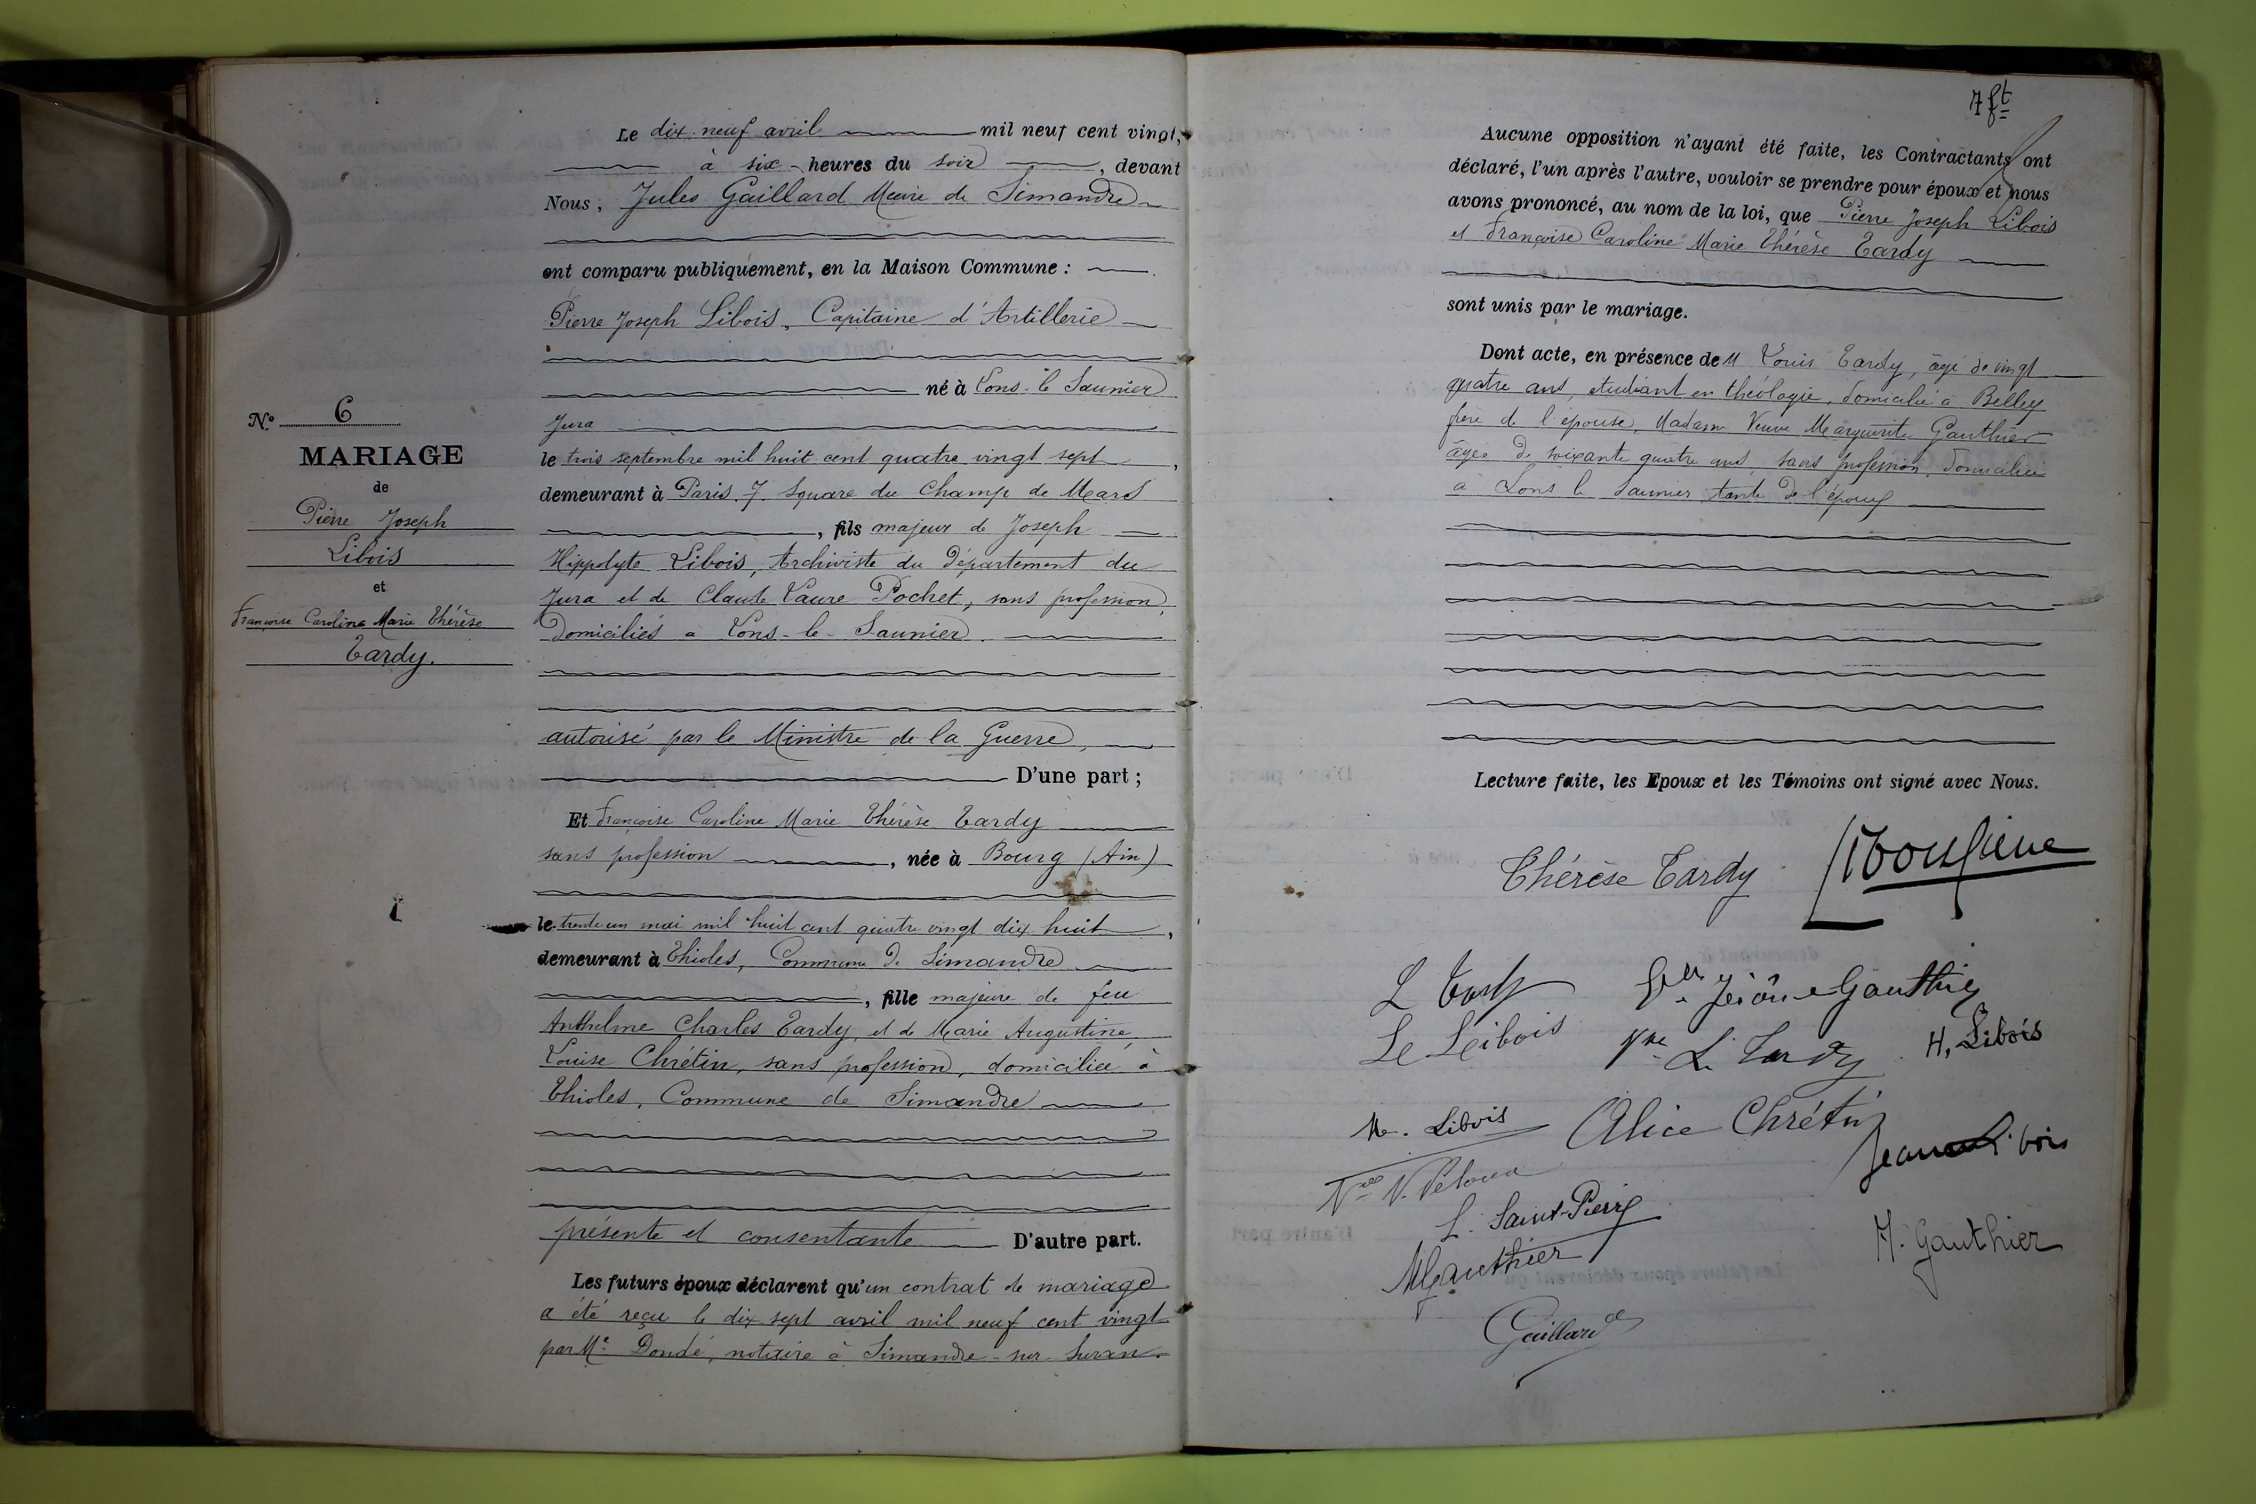 Le dix-neuf avril mil neuf cent vingt,
à six heures du soir, devant
Nous, Jules Gaillard Maire de Simandre
ont comparu publiquement, en la Maison Commune :
Pierre Joseph Libois, Capitaine d'Artillerie
né à Lons-le Saunier
Jura
le trois septembre mil huit cent quatre vingt sept,
demeurant à Paris, 7 Square du Champ de Mars
, fils majeur de Joseph
Hippolyte Libois, Archiviste du Département du
Jura et de Claude Laure Pochet, sans profession,
domiciliés à Lons-le-Saunier.
autorisé par le Ministre de la Guerre,
D'une part ;
Et Françoise Caroline Marie Thérèse Tardy
sans profession, née à Bourg (Ain)
le trente un mai mil huit cent quatre vingt dix huit,
demeurant à Thioles, Commune de Simandre
, fille majeure de feu
Anthelme Charles Tardy, et de Marie Augustine
Louise Chrétin, sans profession, domiciliée à
Thioles, Commune de Simandre
présente et consentante D'autre part.
Les futurs époux déclarent qu'un contrat de mariage
a été reçu le dix sept avril mil neuf cent vingt
par Me Dondé, notaire à Simandre-sur-Suran.
N° 6
MARIAGE
de
Pierre Joseph
Libois
et
Françoise Caroline Marie Thérèse
Tardy.
7 ft
Aucune opposition n'ayant été faite, les Contractants ont
déclaré, l'un après l'autre, vouloir se prendre pour époux et nous
avons prononcé, au nom de la loi, que Pierre Joseph Libois
et Françoise Caroline Marie Thérèse Tardy
sont unis par le mariage.
Dont acte, en présence de M Louis Tardy, âgé de vingt
quatre ans, étudiant en théologie, domicilié à Belley
frère de l'épouse, Madame Veuve Marguerite Gauthier
âgée de soixante quatre ans, sans profession, domiciliée
à Lons le Saunier, tante de l'époux
Lecture faite, les Epoux et les Témoins ont signé avec Nous.
Thérèse Tardy
L Tardy
Jérôme Gauthier
Le Libois
Vve L. Tardy
H. Libois
M. Libois
Alice Chrétin
Jean Libois
L. Saint-Pierre
MGauthier
H. Gauthier
Gaillard